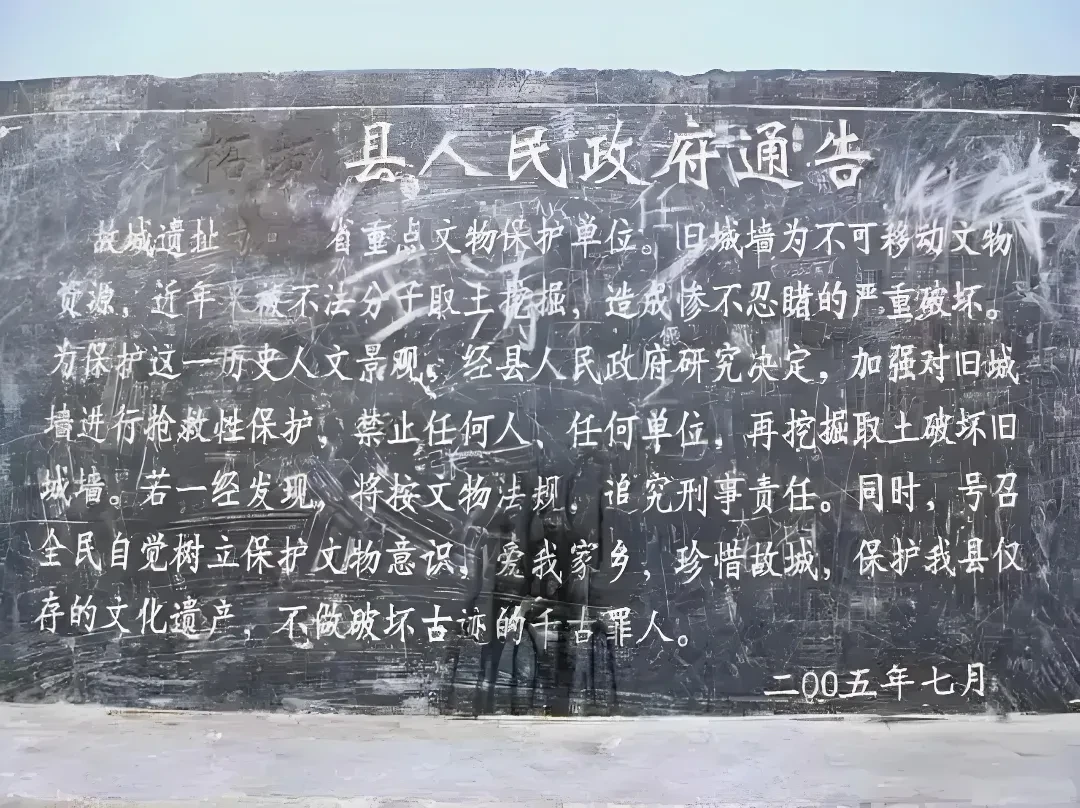 县人民政府通告
故城遗址 省重点文物保护单位。旧城墙为不可移动文物
资源，近年来被不法分子取土挖掘，造成惨不忍睹的严重破坏。
为保护这一历史人文景观，经县人民政府研究决定，加强对旧城
墙进行抢救性保护，禁止任何人、任何单位，再挖掘取土破坏旧
城墙。若一经发现，将按文物法规，追究刑事责任。同时，号召
全民自觉树立保护文物意识，爱我家乡，珍惜故城，保护我县仅
存的文化遗产，不做破坏古迹的千古罪人。
二00五年七月